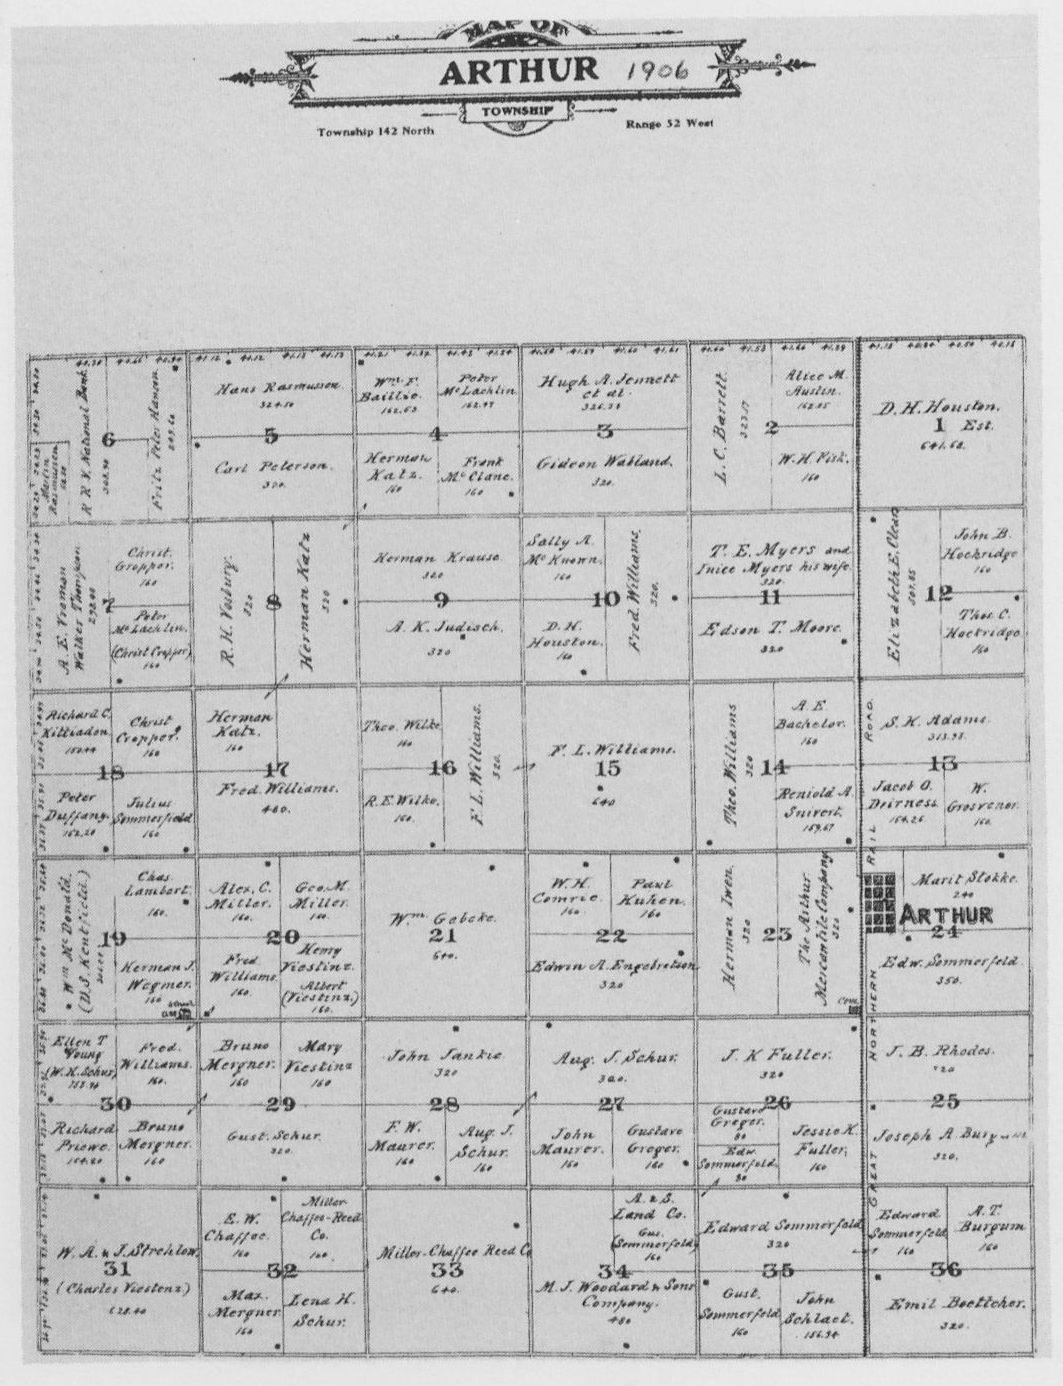 MAP OF
ARTHUR 1906
TOWNSHIP
Township 142 North
Range 52 West
R R V. National Bank
Fritz Peter Hansen
Rasmussen
6
Hans Rasmussen.
5
Carl Peterson.
320.
Wm. F.
Baillie.
Peter
McLachlin
4
Herman
Katz.
160
Frank
McClane.
160
Hugh A. Jennett
et al.
3
Gideon Wabland.
320.
L. C. Barrett.
323.17
Alice M.
Austin.
2
W. H. Fisk.
160
D. H. Houston.
1 Est.
641.62
A. E. Vroman
Walker Thompson
292.00
Christ.
Cropper.
160
7
Peter
McLachlin.
(Christ Cropper)
160
R. H. Vosbury.
320
8
Herman Katz
320
Herman Krause
320
9
A. K. Judisch.
320
Sally A.
McKnown.
160
10
D. H.
Houston.
160
Fred. Williams.
320.
T. E. Myers and
Inice Myers his wife.
320.
11
Edson T. Moore.
320
John B.
Hockridge
160
12
Thos C.
Hockridge
160
Richard C.
Christ
Cropper.
160
18
Peter
Duffany.
Julius
Sommerfield
160
Herman
Katz.
160
17
Fred. Williams.
480.
Theo. Wilke
160
16
R. E. Wilke.
160.
F. L. Williams.
320.
F. L. Williams.
15
640
Theo. Williams
320
A. E
Bachelor.
160
14
Reniold A.
Snivert.
159.67
S. K. Adams.
313.93.
13
Jacob O.
Deirness.
154.26
W.
Grosvenor.
160.
Wm McDonald.
(D. S. Kentfield.)
Chas
Lambert.
160.
19
Herman J.
Wegner.
160
Alex. C.
Miller.
160.
Geo. M.
Miller.
160.
20
Fred.
Williams.
160.
Henry
Viestinz.
Albert
(Viestinz.)
160.
Wm. Gebeke.
21
640.
W. H.
Comrie.
160.
Paul
Kuhen.
160
22
Edwin A. Engebretson
320
Herman Iwen.
320
23
The Arthur
Mercantile Company
320
Cem.
Marit Stokke.
240
ARTHUR
24
Edw. Sommerfeld
350.
Ellen T
Young
(W. K. Schur)
Fred.
Williams.
160.
30
Richard
Priewe.
164.20
Bruno
Mergner.
160
Bruno
Mergner.
160
Mary
Viestinz
160
29
Gust. Schur.
320.
John Jankie
320
28
F. W.
Maurer.
160
Aug. J.
Schur.
160
Aug. J. Schur.
320.
27
John
Maurer.
160
Gustave
Greger.
160
J. K Fuller.
320
26
Gustave
Greger.
80
Edw.
Sommerfeld.
80
Jessie K.
Fuller.
160
J. B. Rhodes.
320
25
Joseph A. Burgum
320.
GREAT NORTHERN RAIL ROAD.
W. A. & J. Strehlow.
31
(Charles Viestenz)
628.40
E. W.
Chaffee.
160
Miller
Chaffee-Reed
Co.
160.
32
Max.
Mergner.
160
Lena H.
Schur.
Miller-Chaffee Reed Co
33
640.
A. & S.
Land Co.
Gus.
(Sommerfeld)
160
34
M. J. Woodard & Sons
Company.
480
Edward Sommerfeld
320
35
Gust.
Sommerfeld
160
John
Schlact.
156.34
Edward
Sommerfeld.
160
A. T.
Burgum
160
36
Emil Boettcher.
320.